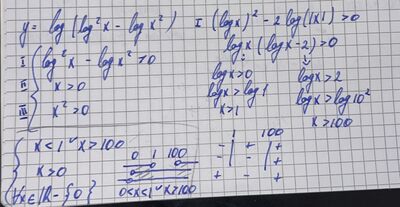 y = log(log²x − log x²)
I (log x)² − 2 log(|x|) > 0
log x (log x − 2) > 0
I log²x − log x² > 0
II x > 0
III x² > 0
log x > 0
log x > log 1
x > 1
log x > 2
log x > log 10²
x > 100
x < 1 ∨ x > 100
x > 0
∀x ∈ ℝ − {0}
0 1 100
0 < x < 1 ∨ x > 100
1 100
− + +
− − +
+ − +